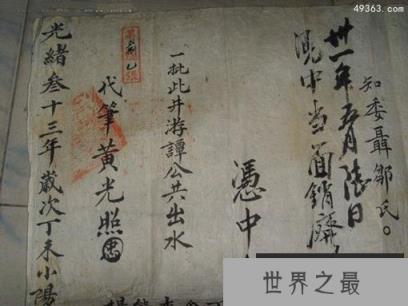 49363.com
知委聶鄒氏。
卅一年五月陸日
憑中當面銷
憑中
一批此井游譚公共出水
代筆黃光照
光緒叁十三年歲次丁未小陽
世界之最